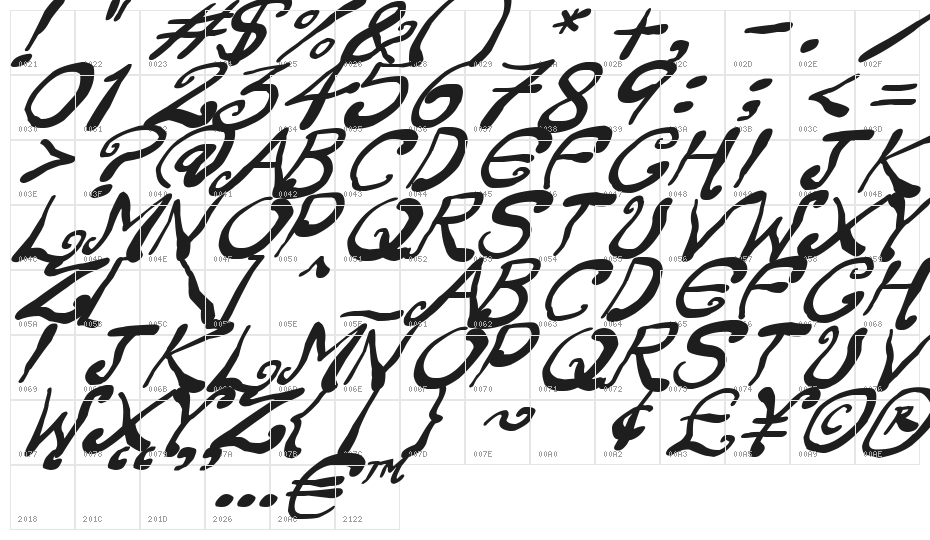 ! " # $ % & ( ) * + , - . /
0021 0022 0023 0024 0025 0026 0028 0029 002A 002B 002C 002D 002E 002F
0 1 2 3 4 5 6 7 8 9 : ; < =
0030 0031 0034 0035 0036 0037 0038 0039 003A 003B 003C 003D
> ? @ A B C D E F G H I J K
003E 003F 0040 0041 0042 0043 0044 0045 0046 0047 0048 0049 004B
L M N O P Q R S T U V W X Y
004C 004D 004E 004F 0050 0051 0052 0053 0054 0055 0056 0057 0058 0059
Z [ \ ] ^ _ A B C D E F G H
005A 005B 005C 005E 005F 0061 0062 0063 0064 0065 0066 0067 0068
I J K L M N O P Q R S T U V
0069 006A 006B 006E 006F 0070 0071 0072 0073 0074 0075 0076
W X Y Z { | } ~ ¢ £ ¥ © ®
0077 0078 0079 007A 007B 007C 007D 007E 00A0 00A2 00A3 00A5 00A9 00AE
‘ “ ” … € ™
2018 201C 201D 2026 20AC 2122